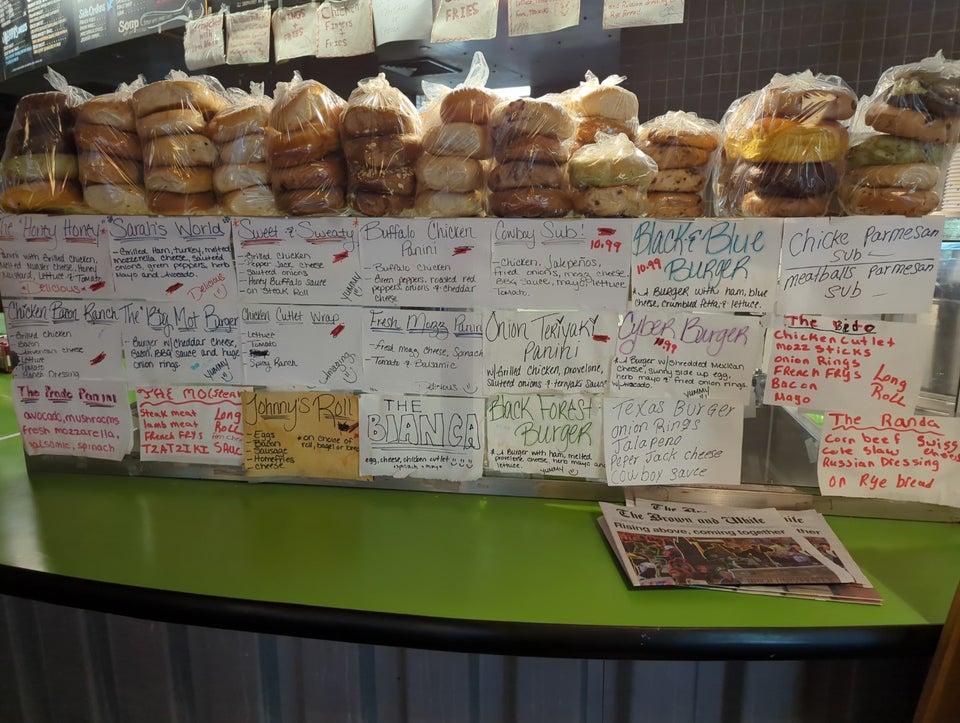 Side Orders
Soup
FRIES
WINGS
+
FRIES
Chicken
Fingers
+
FRIES
FRIES
The "Honey Honey"
Ranch with Grilled Chicken,
Melted Muenster cheese, Honey
Lettuce & Tomato
Delicious
Sarah's World
-Grilled, Ham, turkey, melted
mozzarella cheese, Sauteed
onions, green peppers, herb
mayo and Avocado.
Delicious
Sweet & Sweaty
-Grilled Chicken
-Pepper Jack cheese
-Sauteed onions
-Honey Buffalo Sauce
-on Steak Roll
YUMMY
Buffalo Chicken
Panini
- Buffalo Chicken
Green peppers, roasted red
peppers, onions & cheddar
cheese
Cowboy Sub!
10.99
-Chicken, Jalapeños,
Fried onions, mozz cheese
BBQ Sauce, mayo, lettuce
Tomato.
Black & Blue
Burger
10.99
Burger with Ham, blue
cheese, crumbled feta, & lettuce.
Chicke Parmesan
Sub
meatballs parmesan
Sub
Chicken Bacon Ranch
-Grilled Chicken
-Bacon
cheese
-Lettuce
-Tomato
-Ranch Dressing
YUMMY
The "Big Mot" Burger
-Burger w/cheddar Cheese,
Bacon, BBQ sauce and huge
onion rings
YUMMY
Chicken Cutlet Wrap
-Lettuce
-Tomato
-Spicy Ranch
Amazing
Fresh Mozz Panini
-Fresh Mozz cheese, Spinach
-Tomato & Balsamic
Delicious
Onion Teriyaki
Panini
w/Grilled chicken, provelone,
Sauteed onions & teriyaki Sauce
Cyber Burger
.99
Burger w/Shredded Mexican
Cheese, Sunny side up egg,
herb mayo & fried onion rings
w/avocado.
YUMMY
The Beto
Chicken Cutlet
Mozz Sticks
onion Rings
French Frys
Bacon
Mayo
Long
Roll
The Prade Panini
avocado, mushrooms
fresh mozzarella,
balsamic, spinach
THE MO(Steak)
Steak meat
lamb meat
French Frys
TZATZIKI SAUCE
Long
Roll
Johnny's Roll
-Eggs
-Bacon
-Sausage
-Homefries
cheese
* on choice of
roll, bagel or bread
THE
BIANCA
egg, cheese, chicken cutlet
spinach & mayo
Black Forest
Burger
Burger with ham, melted
provelone, cheese, herb mayo and
lettuce.
YUMMY
Texas Burger
onion Rings
Jalapeno
Peper Jack cheese
Cowboy Sauce
The Randa
Corn beef Swiss
Cole Slaw cheese
Russian Dressing
on Rye bread
The Brown and White
Rising above, coming together
ther